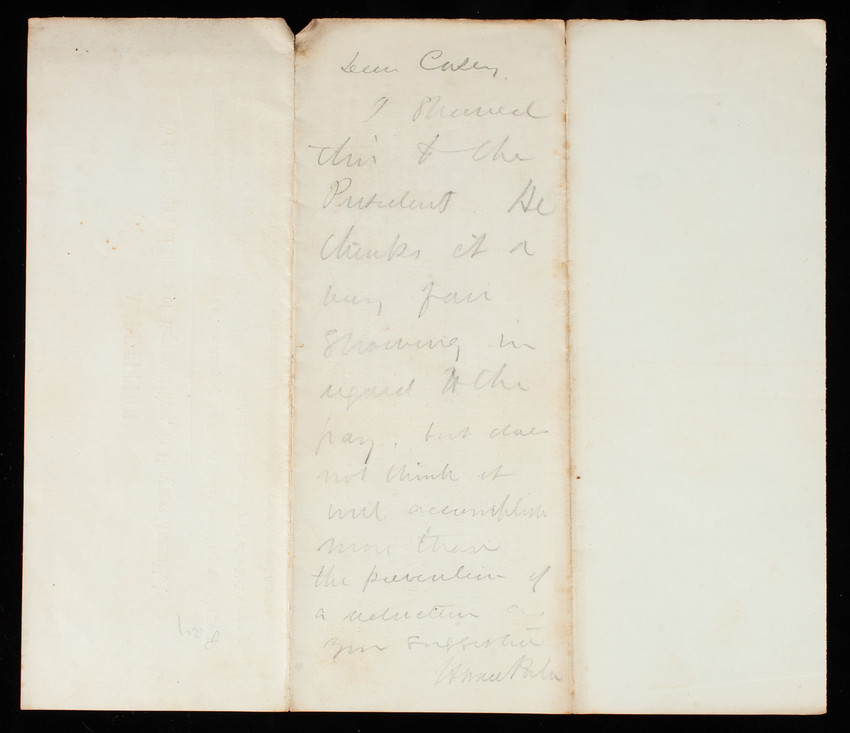 Dear Casey,
I showed
this to the
President. He
thinks it a
very fair
showing in
regard to the
pay, but does
not think it
will accomplish
more than
the prevention of
a reduction as
you suggested
Horace